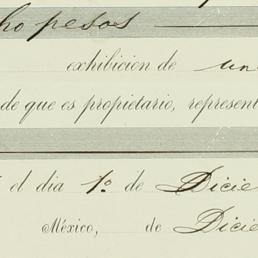 ho pesos
exhibicion de un
de que es propietario, represent
el dia 1º de Dicie
México, de Dicie